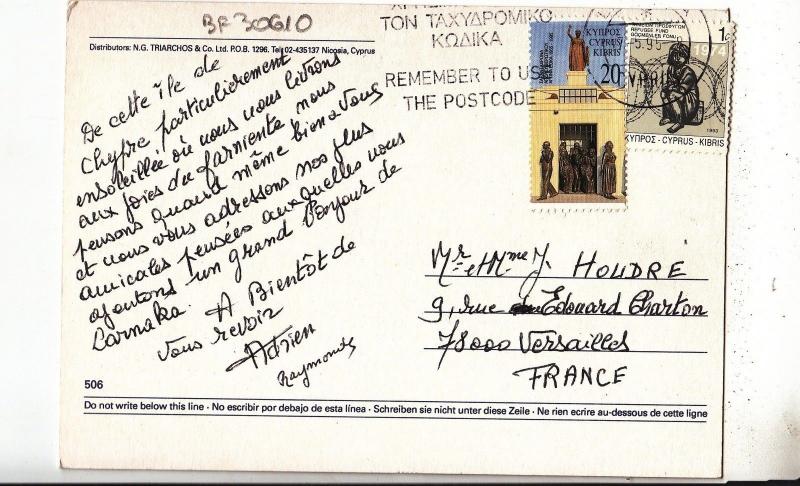 BF30610
Distributors: N.G. TRIARCHOS & Co. Ltd. P.O.B. 1296. Tel. 02-435137 Nicosia, Cyprus
ΤΟΝ ΤΑΧΥΔΡΟΜΙΚΟ
ΚΩΔΙΚΑ
REMEMBER TO US
THE POSTCODE
ΚΥΠΡΟΣ
CYPRUS
KIBRIS
20
1c
REFUGEE FUND
GÖÇMENLER FONU
1974
1993
ΚΥΠΡΟΣ - CYPRUS - KIBRIS
De cette île de
Chypre, particulièrement
ensoleillée où nous nous livrons
aux joies du farniente nous
pensons quand même bien à vous
et nous vous adressons nos plus
amicales pensées auxquelles nous
ajoutons un grand bonjour de
Larnaka. A Bientôt de
vous revoir
Adrien
Raymonde
Mr et Mme J. HOUDRÉ
9, rue Edouard Charton
78000 Versailles
FRANCE
506
Do not write below this line · No escribir por debajo de esta línea · Schreiben sie nicht unter diese Zeile · Ne rien ecrire au-dessous de cette ligne